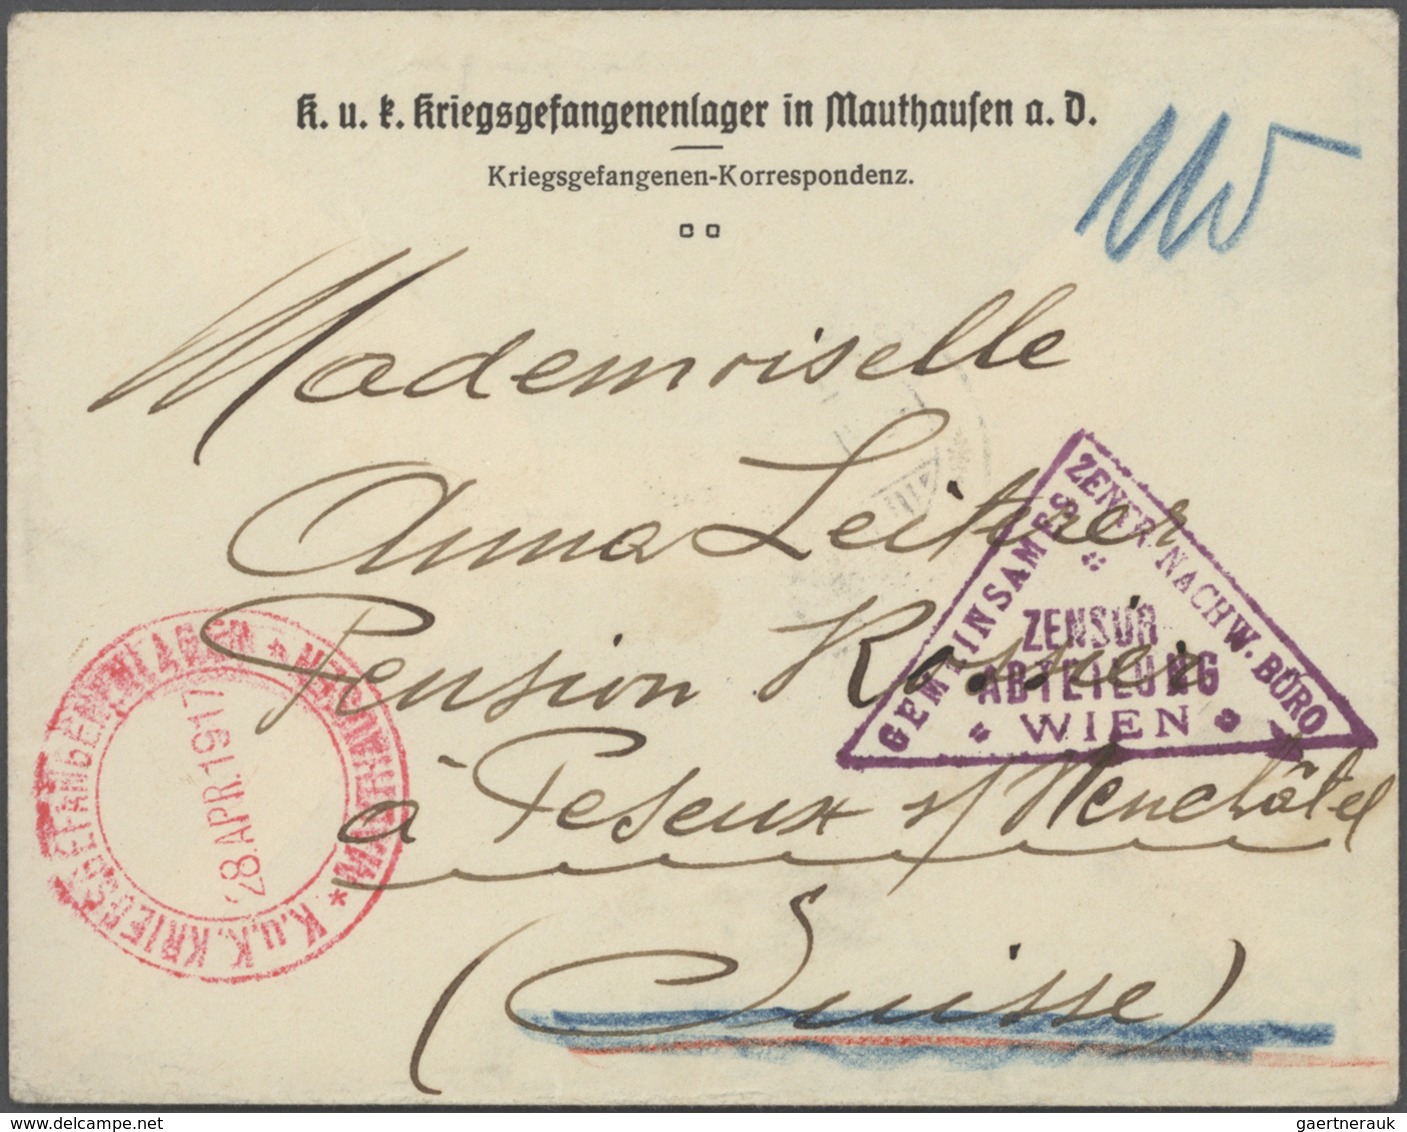 K. u. k. Kriegsgefangenenlager in Mauthausen a. D.
Kriegsgefangenen-Korrespondenz.
Mademoiselle
Anna Leiterer
Pension Rosser
à Peseux s/ Neuchâtel
(Suisse)
GEMEINSAMES ZENTR. NACHW. BÜRO
ZENSUR
ABTEILUNG
WIEN
K.u.K. KRIEGSGEFANGENENLAGER * MAUTHAUSEN *
28.APR.1917
gaertnerauk